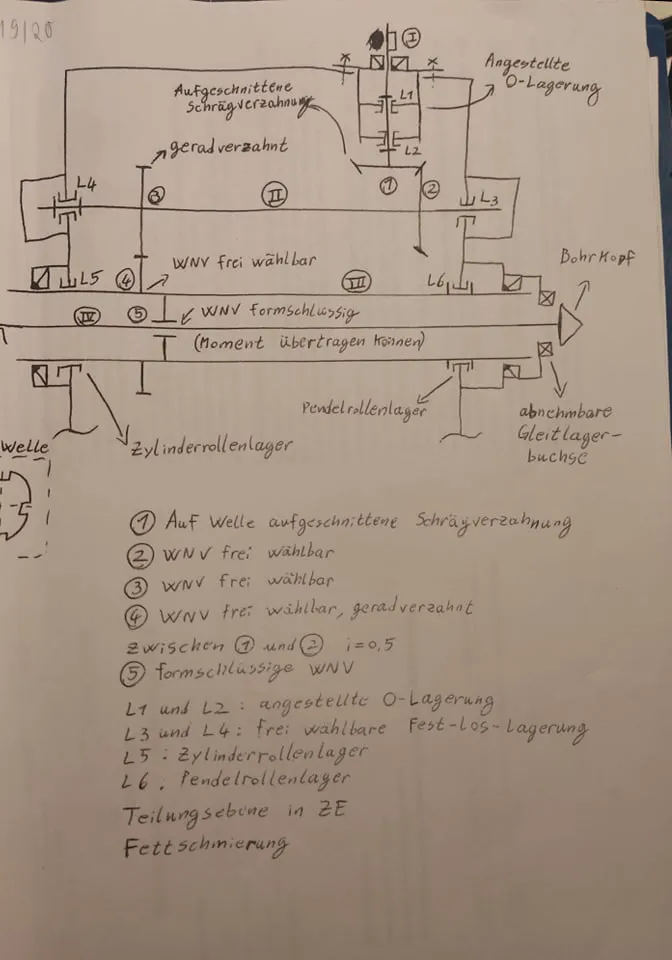 19/20
I
Angestellte
O-Lagerung
Aufgeschnittene
Schrägverzahnung
L1
L2
geradverzahnt
L4
3
II
1
2
L3
WNV frei wählbar
Bohrkopf
L5
4
III
L6
IV
5
WNV formschlüssig
(Moment übertragen können)
Pendelrollenlager
abnehmbare
Gleitlager-
buchse
Welle
Zylinderrollenlager
1 Auf Welle aufgeschnittene Schrägverzahnung
2 WNV frei wählbar
3 WNV frei wählbar
4 WNV frei wählbar, geradverzahnt
zwischen 1 und 2 i=0,5
5 formschlüssige WNV
L1 und L2: angestellte O-Lagerung
L3 und L4: frei wählbare Fest-los-lagerung
L5: Zylinderrollenlager
L6. Pendelrollenlager
Teilungsebene in ZE
Fettschmierung